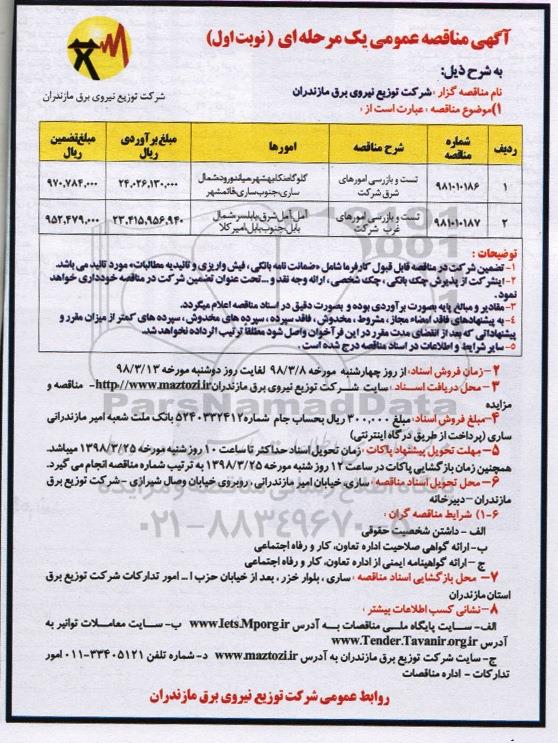 آگهی مناقصه عمومی یک مرحله ای ( نوبت اول)
به شرح ذیل:
شرکت توزیع نیروی برق مازندران
نام مناقصه گزار : شرکت توزیع نیروی برق مازندران
۱)موضوع مناقصه : عبارت است از :
ردیف شماره مناقصه شرح مناقصه امورها مبلغ برآوردی ریال مبلغ تضمین ریال
۱ ۹۸۱۰۱۰۱۸۶ تست و بازرسی امورهای شرق شرکت گلوگاه،نکا،بهشهر،میاندورود،شمال ساری،جنوب ساری،قائمشهر ۲۴،۰۲۶،۱۳۰،۰۰۰ ۹۷۰،۷۸۴،۰۰۰
۲ ۹۸۱۰۱۰۱۸۷ تست و بازرسی امورهای غرب شرکت آمل،آمل شرق،بابلسر،شمال بابل،جنوب بابل،امیرکلا ۲۳،۴۱۵،۹۵۶،۹۴۰ ۹۵۲،۴۷۹،۰۰۰
توضیحات :
۱- تضمین شرکت در مناقصه قابل قبول کارفرما شامل «ضمانت نامه بانکی ، فیش واریزی و تائیدیه مطالبات» مورد تائید می باشد.
۲- اینشرکت از پذیرش چک بانکی ، چک شخصی ، ارائه وجه نقد و ...تحت عنوان تضمین شرکت در مناقصه خودداری خواهد
نمود.
۳- مقادیر و مبالغ پایه بصورت برآوردی بوده و بصورت دقیق در اسناد مناقصه اعلام میگردد.
۴- به پیشنهادهای فاقد امضاء مجاز ، مشروط ، مخدوش ، فاقد سپرده ، سپرده های مخدوش ، سپرده های کمتر از میزان مقرر و
پیشنهاداتی که بعد از انقضای مدت مقرر در این فرآخوان واصل شود مطلقاً ترتیب اثر داده نخواهد شد.
۵- سایر شرایط و اطلاعات در اسناد مناقصه درج شده است.
۲- زمان فروش اسناد: از روز چهارشنبه مورخه ۹۸/۳/۸ لغایت روز دوشنبه مورخه ۹۸/۳/۱۳
۳- محل دریافت اسناد : سایت شرکت توزیع نیروی برق مازندران http//www.maztozi.ir- مناقصه و
مزایده
۴- مبلغ فروش اسناد: مبلغ ۳۰۰,۰۰۰ ریال بحساب جام شماره ۵۲۴۰۳۳۲۴۱۲ بانک ملت شعبه امیر مازندرانی
ساری (پرداخت از طریق درگاه اینترنتی)
۵- مهلت تحویل پیشنهاد پاکات : زمان تحویل اسناد حداکثر تا ساعت ۱۰ روز شنبه مورخه ۱۳۹۸/۳/۲۵ میباشد.
همچنین زمان بازگشایی پاکات در ساعت ۱۲ روز شنبه مورخه ۱۳۹۸/۳/۲۵ به ترتیب شماره مناقصه انجام می گیرد.
۶- محل تحویل اسناد مناقصه : ساری، خیابان امیر مازندرانی ، روبروی خیابان وصال شیرازی - شرکت توزیع برق
مازندران - دبیرخانه
۶-۱) شرایط مناقصه گران :
الف - داشتن شخصیت حقوقی
ب- ارائه گواهی صلاحیت اداره تعاون، کار و رفاه اجتماعی
ج - ارائه گواهینامه ایمنی از اداره تعاون، کار و رفاه اجتماعی
۷- محل بازگشایی اسناد مناقصه : ساری ، بلوار خزر ، بعد از خیابان حزب ا... امور تدارکات شرکت توزیع برق
استان مازندران
۸- نشانی کسب اطلاعات بیشتر :
الف- سایت پایگاه ملی مناقصات به آدرس www.Iets.Mporg.ir ب- سایت معاملات توانیر به
آدرس www.Tender.Tavanir.org.ir
ج- سایت شرکت توزیع برق مازندران به آدرس www.maztozi.ir د- شماره تلفن ۳۳۴۰۵۱۲۱-۰۱۱ امور
تدارکات - اداره مناقصات
روابط عمومی شرکت توزیع نیروی برق مازندران
ParsNamadData
پایگاه اطلاع رسانی مناقصه و مزایده
۰۲۱-۸۸۳۴۹۶۷۰-۵